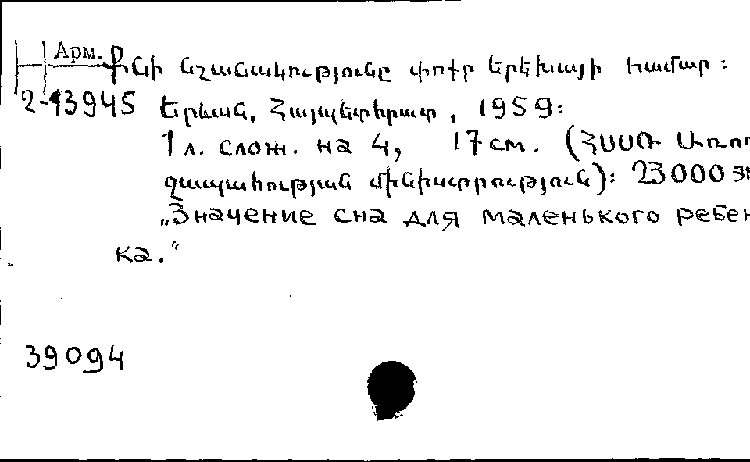 Арм. Քնի նշանակությունը փոքր երեխայի համար:
2-43945 Երևան, Հայպետհրատ, 1959:
1 л. слож. на 4, 17 см. (ՀՍՍՌ Առող
ջապահության մինիստրություն): 23000
„Значение сна для маленького ребен
ка.“
39094